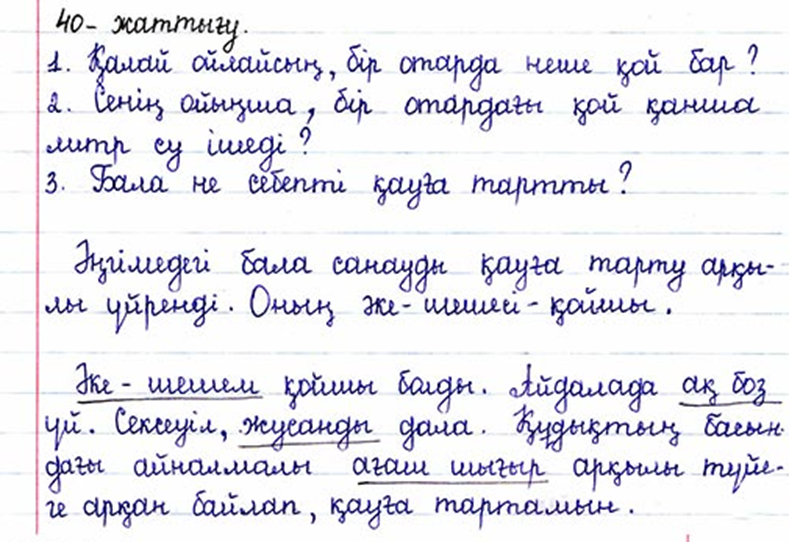 40- жаттығу.
1. Қалай ойлайсың, бір отарда неше қой бар?
2. Сенің ойыңша, бір отардағы қой қанша
литр су ішеді?
3. Бала не себепті қауға тартты?
Әңгімедегі бала санауды қауға тарту арқы-
лы үйренді. Оның әке-шешесі-қойшы.
Әке-шешем қойшы болды. Айдалада ақ боз
үй. Сексеуіл, жусанды дала. Құдықтың басын
дағы айналмалы ағаш шығыр арқылы түйе-
ге арқан байлап, қауға тартамын.